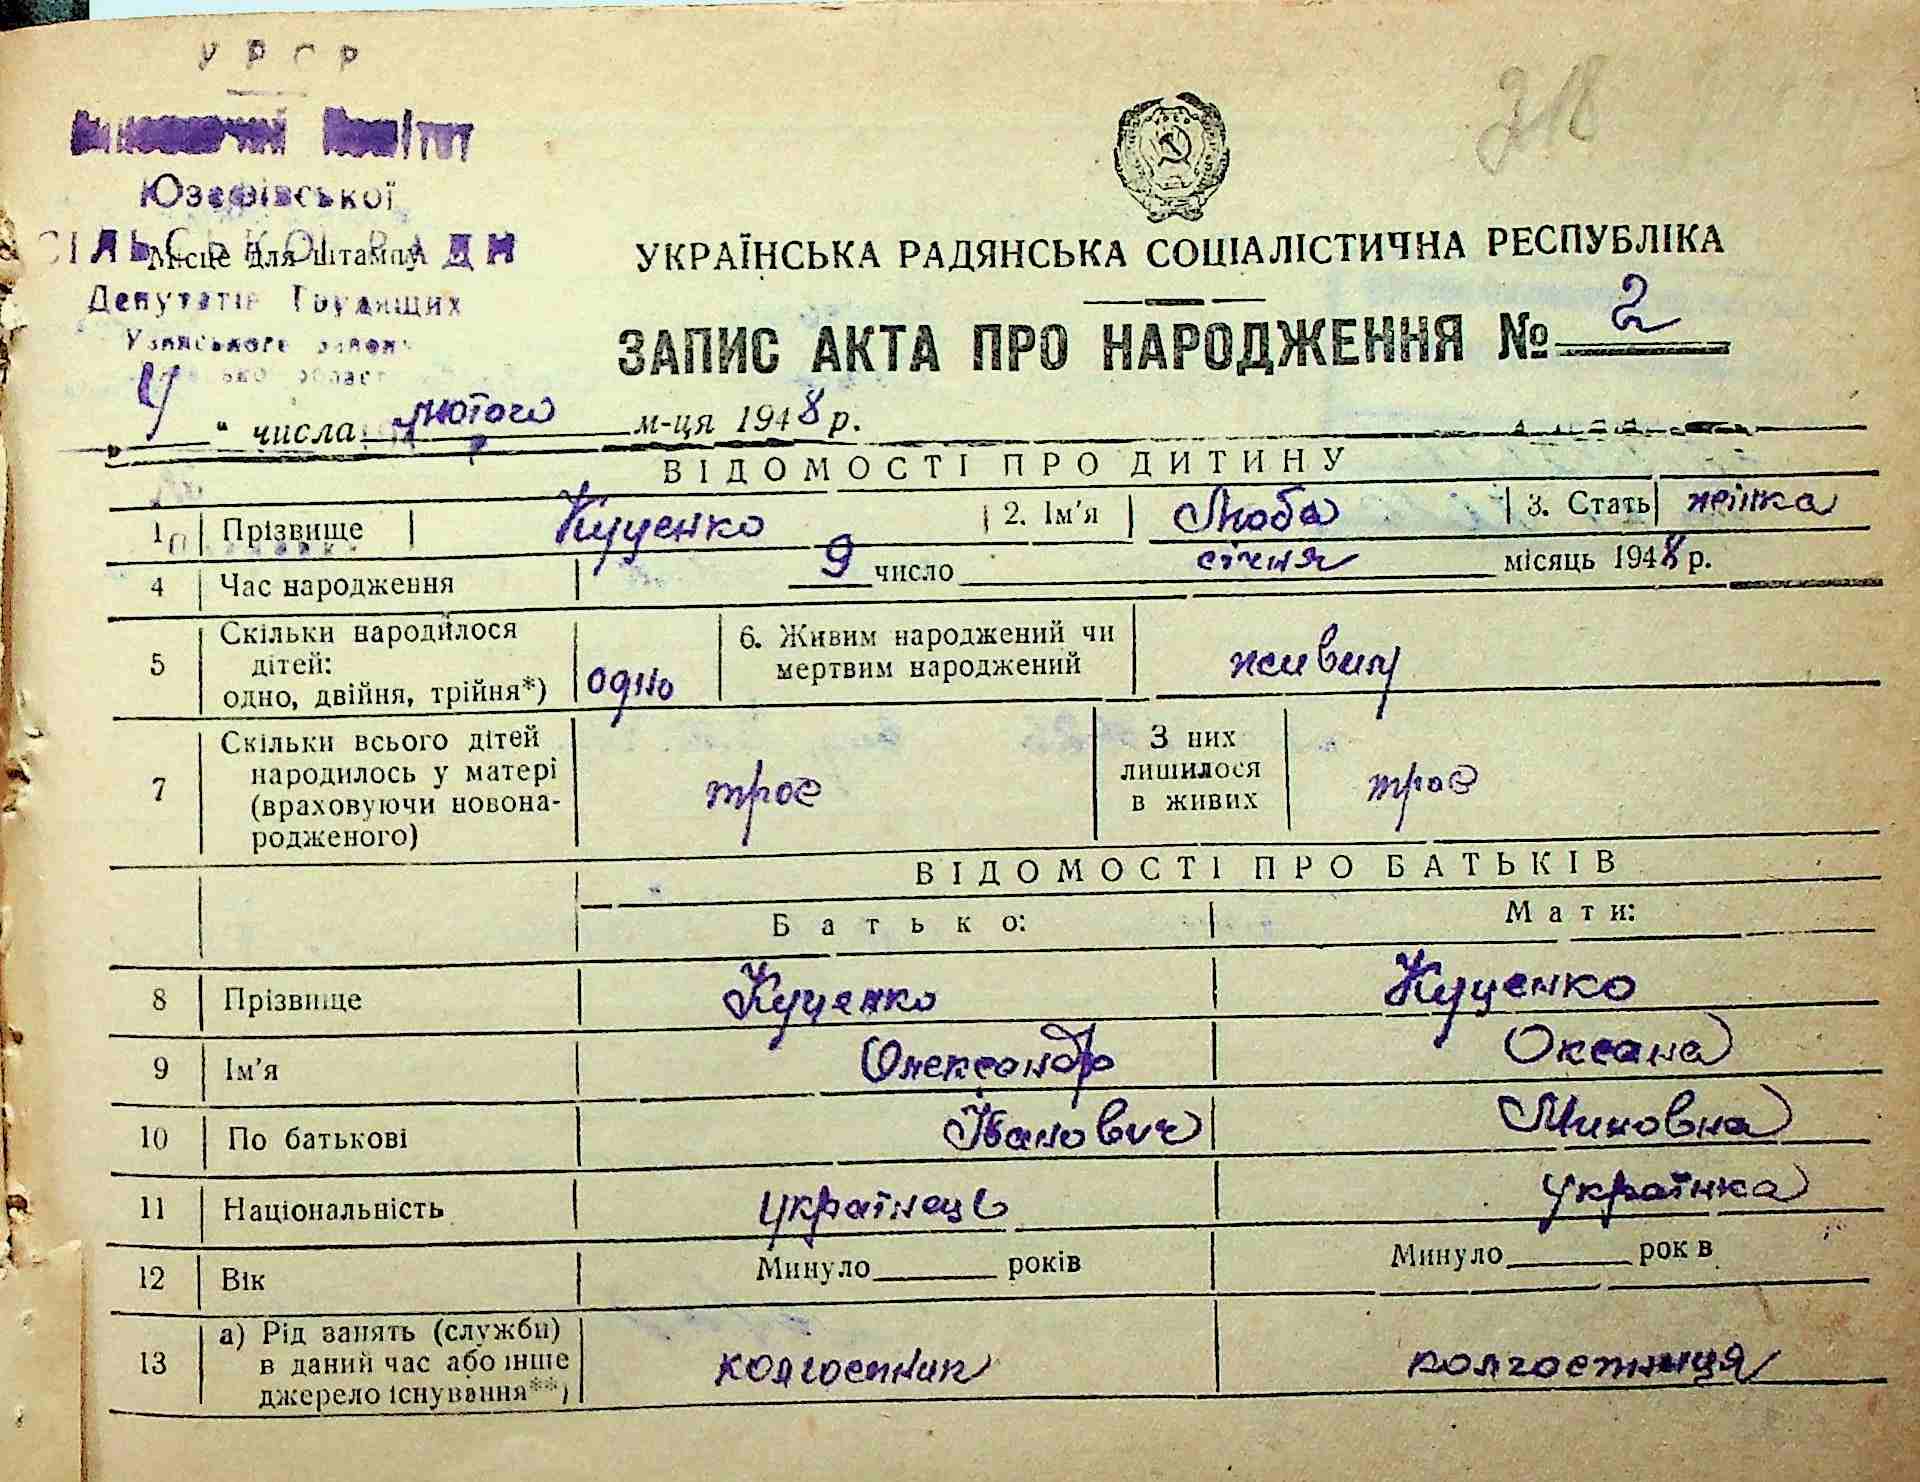 УРСР
Виконавчий Комітет
Юзефівської
СІЛЬСЬКОЇ РАДИ
Місце для штампу
Депутатів Трудящих
Узинського району
318
УКРАЇНСЬКА РАДЯНСЬКА СОЦІАЛІСТИЧНА РЕСПУБЛІКА
ЗАПИС АКТА ПРО НАРОДЖЕННЯ № 2
4 " числа лютого м-ця 1948 р.
ВІДОМОСТІ ПРО ДИТИНУ
1 Прізвище Куценко 2. Ім'я Люба 3. Стать жінка
4 Час народження 9 число січня місяць 1948 р.
5 Скільки народилося дітей: одно, двійня, трійня*) одно 6. Живим народжений чи мертвим народжений живим
7 Скільки всього дітей народилось у матері (враховуючи новонародженого) троє З них лишилося в живих троє
ВІДОМОСТІ ПРО БАТЬКІВ
Батько: Мати:
8 Прізвище Куценко Куценко
9 Ім'я Олександр Оксана
10 По батькові Іванович Миновна
11 Національність українець українка
12 Вік Минуло років Минуло рок в
13 а) Рід занять (служби) в даний час або інше джерело існування**) колгоспник колгоспниця